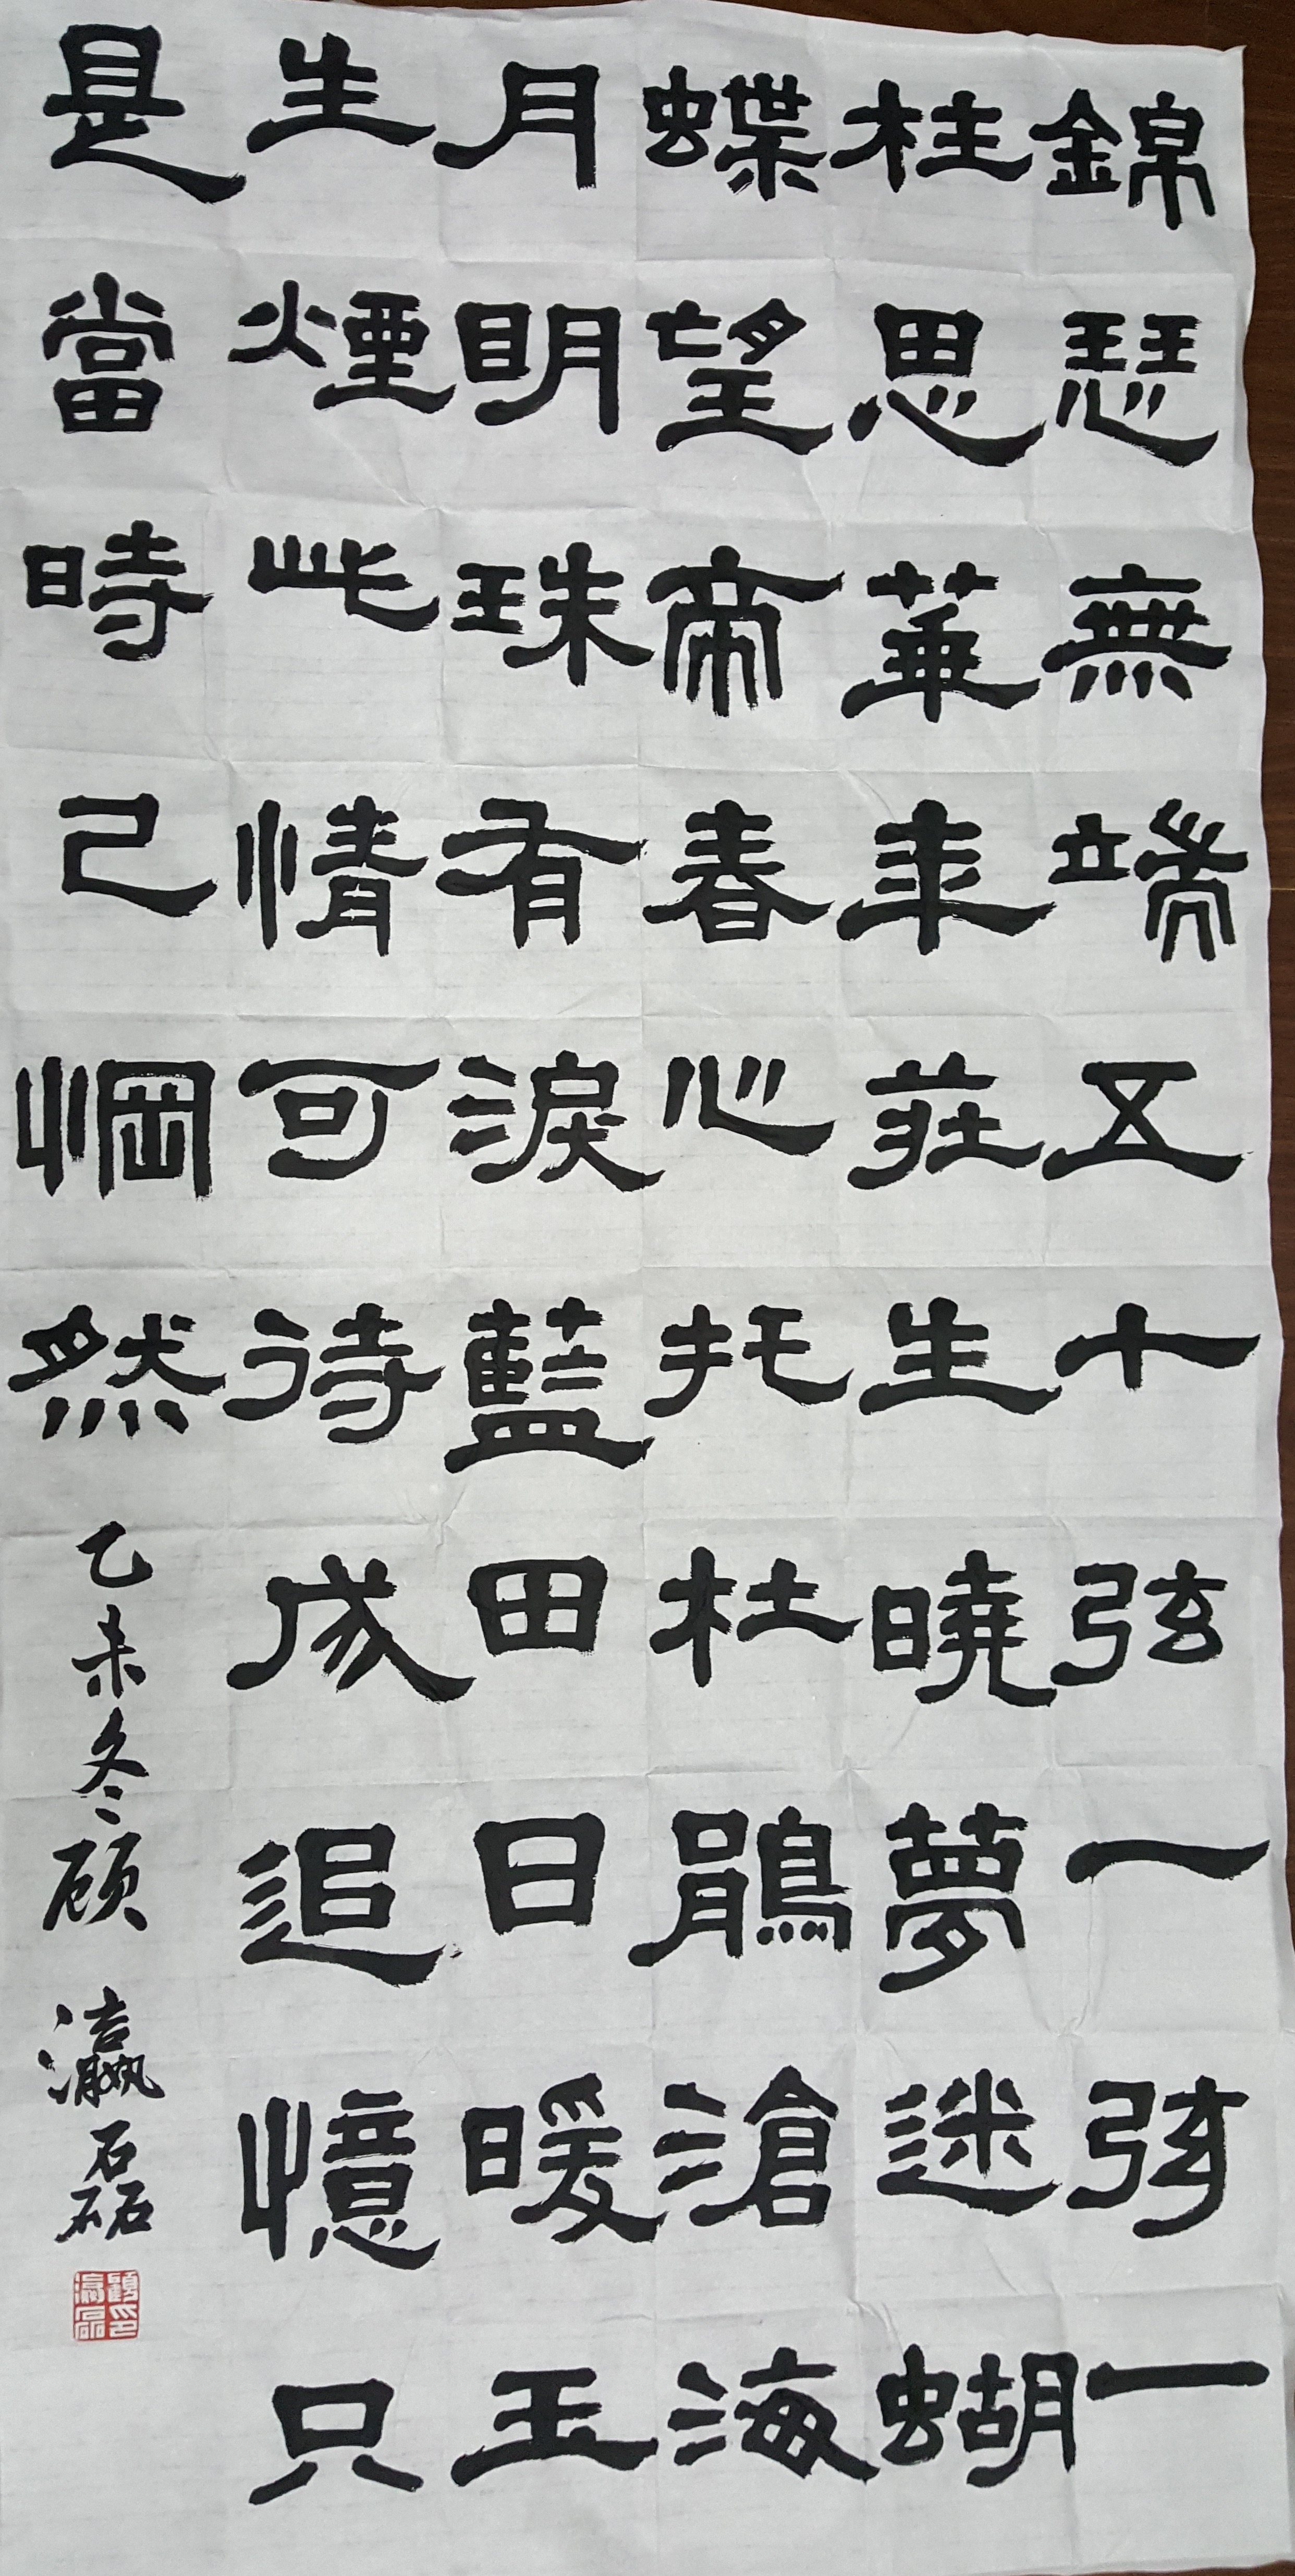 錦瑟無端五十弦一弦一
柱思華年莊生曉夢迷蝴
蝶望帝春心托杜鵑滄海
月明珠有淚藍田日暖玉
生煙此情可待成追憶只
是當時已惘然
乙未冬顾瀛磊
顧印瀛磊